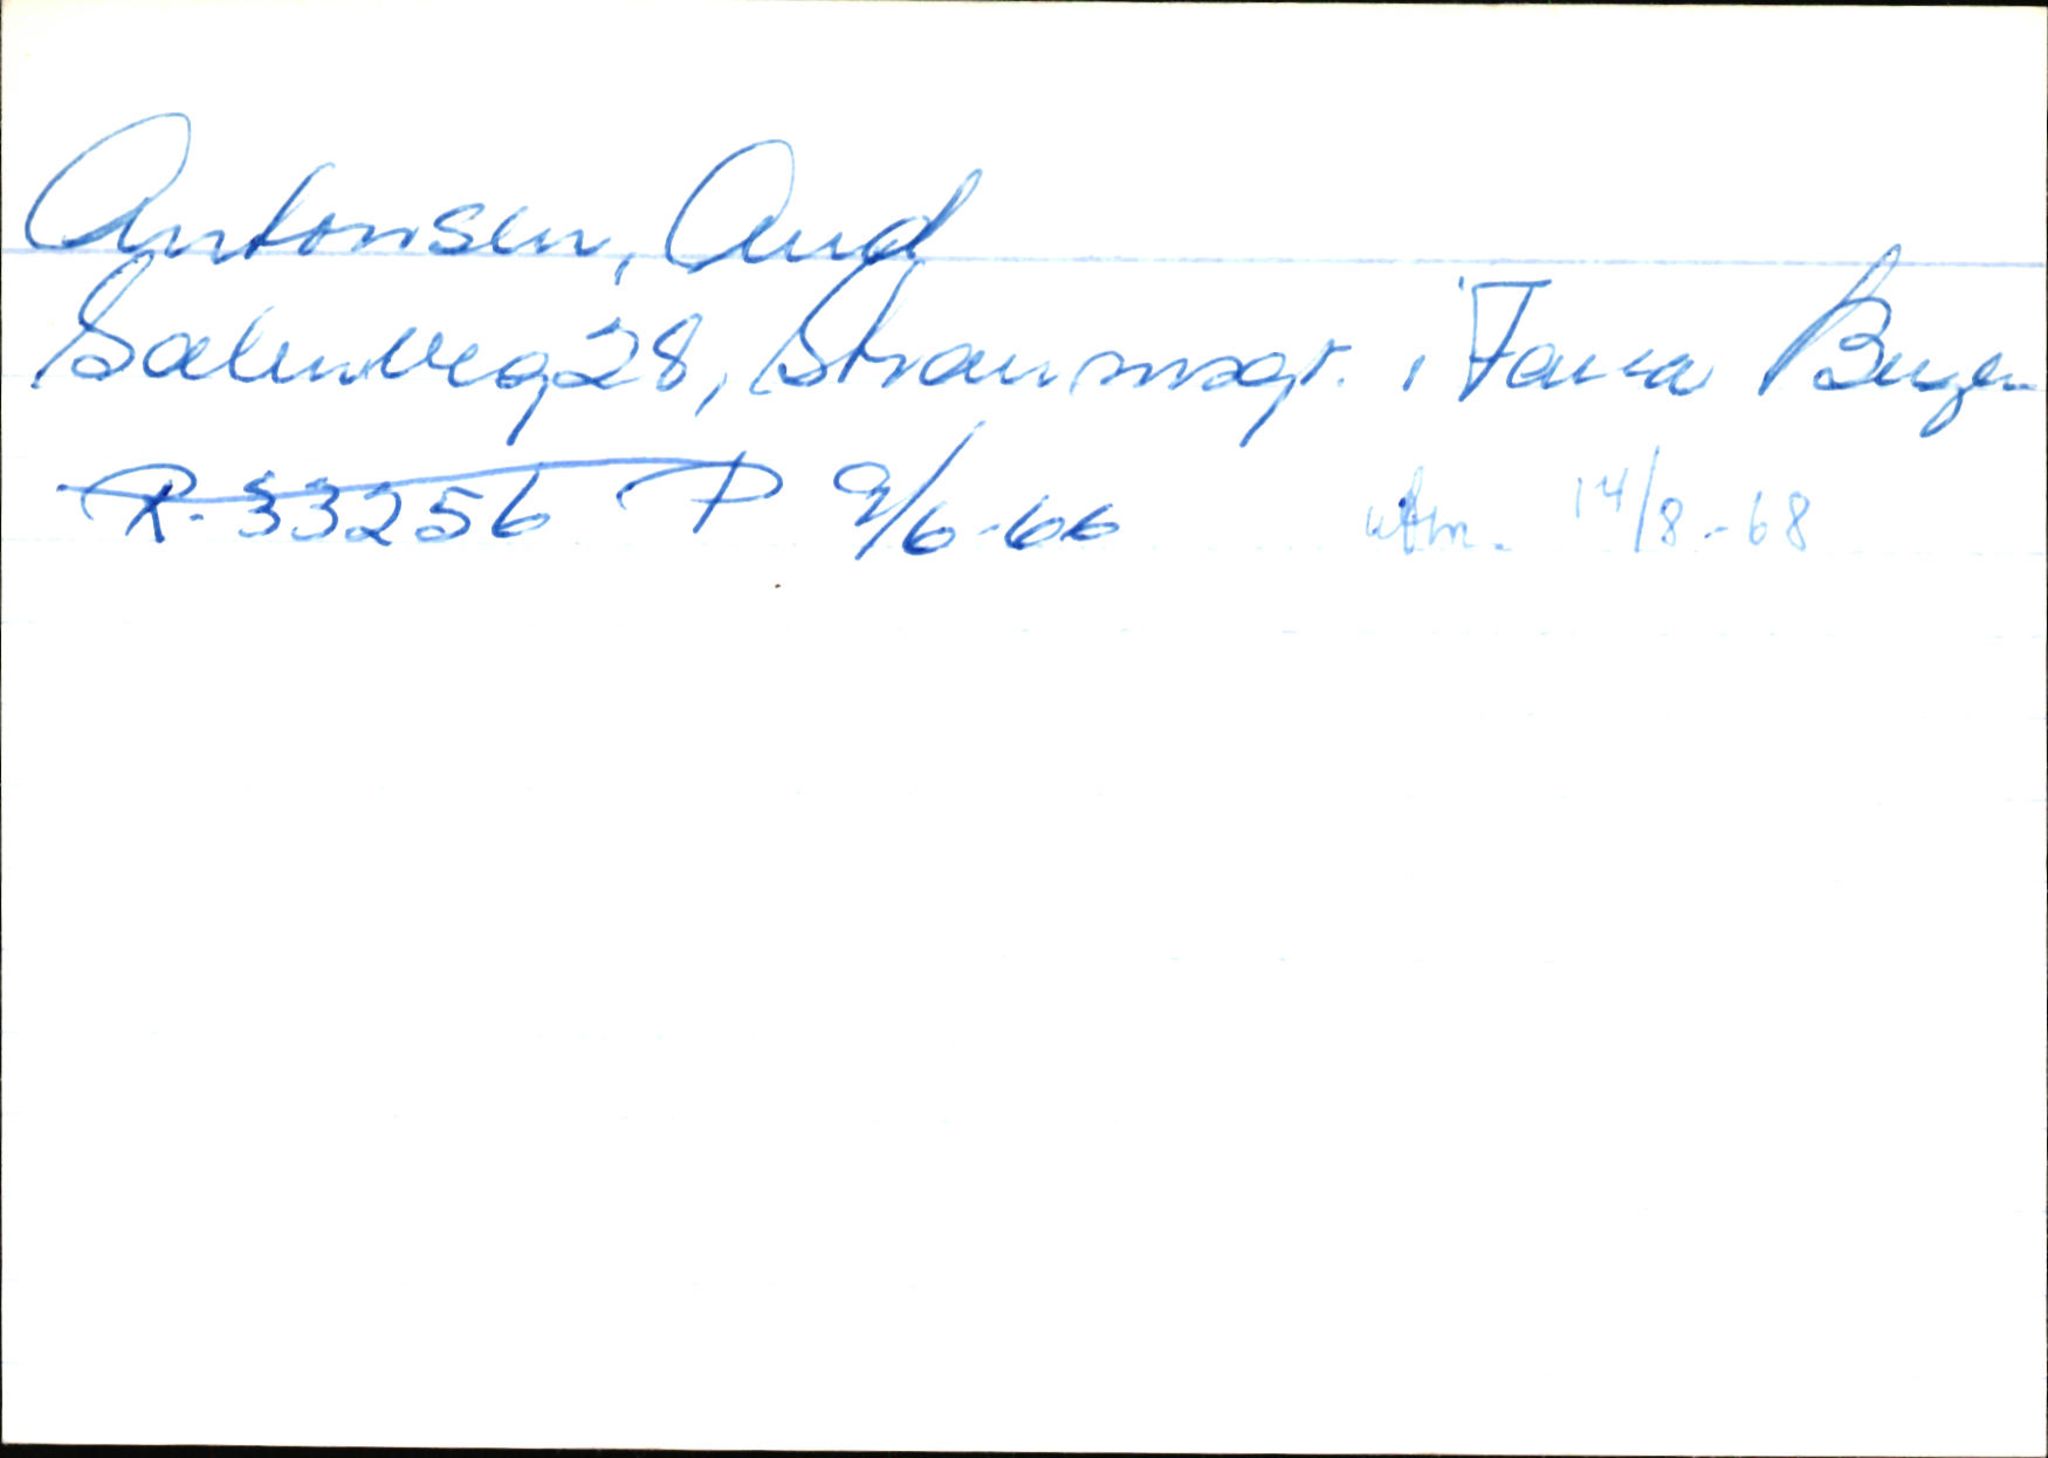 Antonsen, Aud
Sælenveg 28, Straumsgr. , Fana Bergen
R-33256 P 9/6-66 utm. 14/8-68